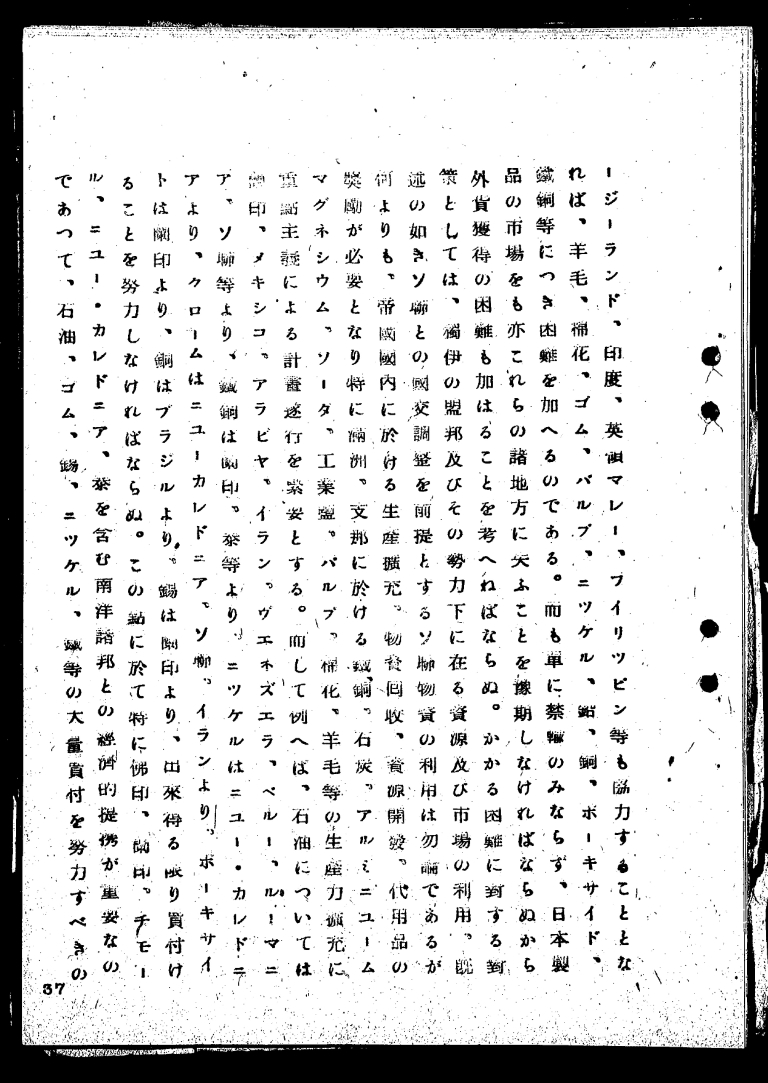 ージーランド、印度、英領マレー、フイリツピン等も協力することとな
れば、羊毛、棉花、ゴム、パルプ、ニツケル、鉛、銅、ボーキサイド、
鐵銅等につき困難を加へるのである。而も單に禁輸のみならず、日本製
品の市場をも亦これらの諸地方に失ふことを豫期しなければならぬから
外貨獲得の困難も加はることを考へねばならぬ。かかる困難に對する對
策としては、獨伊の盟邦及びその勢力下に在る資源及び市場の利用。既
述の如きソ聯との國交調整を前提とするソ聯物資の利用は勿論であるが
何よりも、帝國國內に於ける生產擴充。物資回收、資源開發。代用品の
獎勵が必要となり特に滿洲。支那に於ける鐵、銅。石炭。アルミニユーム
マグネシウム。ソーダ。工業鹽。パルプ。棉花、羊毛等の生產力擴充に
重點主義による計畫遂行を緊要とする。而して例へば、石油については
蘭印、メキシコ。アラビヤ。イラン。ヴエネズエラ、ペルー、ルーマニ
ア。ソ聯等より、鐵銅は蘭印。泰等より、ニツケルはニユー・カレドニ
アより、クロームはニユーカレドニア。ソ聯。イランより。ボーキサイ
トは蘭印より、銅はブラジルより。錫は蘭印より、出來得る限り買付け
ることを努力しなければならぬ。この點に於て特に佛印、蘭印。チモー
ル、ニユー・カレドニア、泰を含む南洋諸邦との經濟的提携が重要なの
であつて、石油、ゴム、錫、ニツケル、鐵等の大量買付を努力すべきの
37